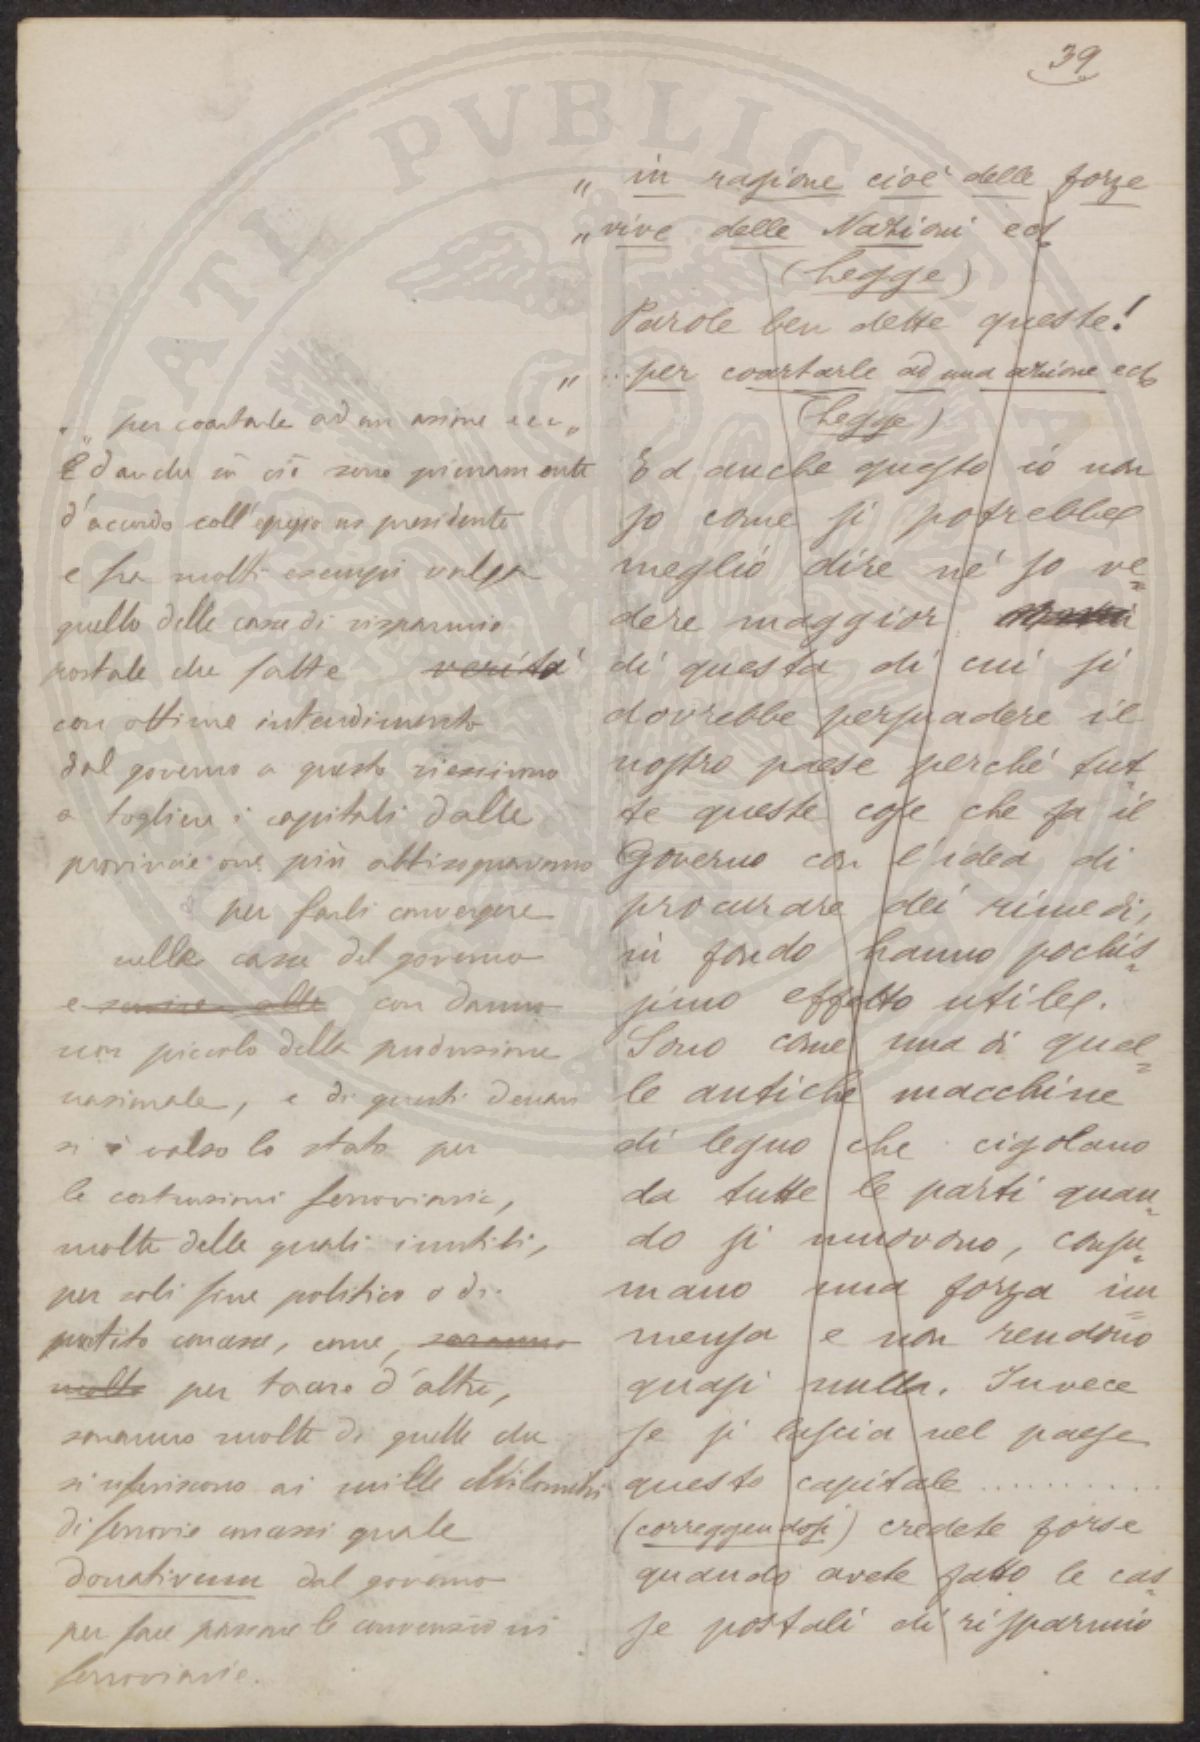 39
„ in ragione cioè delle forze
„ vive delle Nazioni ect
(Legge)
Parole ben dette queste!
„ ... per coartarle ad una azione ect
(Legge)
Ed anche questo io non
so come si potrebbe
meglio dire nè so ve=
dere maggior
di questa di cui si
dovrebbe persuadere il
nostro paese perchè tut
te queste cose che fa il
Governo con l'idea di
procurare dei rimedi,
in fondo hanno pochis=
simo effetto utile.
Sono come una di quel=
le antiche macchine
di legno che cigolano
da tutte le parti quan=
do si muovono, consu=
mano una forza im=
mensa e non rendono
quasi nulla. Invece
se si lascia nel paese
questo capitale ..........
(correggendosi) credete forse
quando avete fatto le cas=
se postali di risparmio
„ per coartarle ad un azione ecc„
Ed anche in ciò sono pienamente
d'accordo coll' presidente
e fra molti esempi valga
quello delle casse di risparmio
postale che fatte verità
con ottimo intendimento
dal governo a questo riescirono
a togliere i capitali dalle
provincie ove più abbisognavano
per farli convergere
nelle casse del governo
e con danno
non piccolo della produzione
nazionale, e di questi denari
si è valso lo stato per
le costruzioni ferroviarie,
molte delle quali inutili,
per soli fine politico o di
partito concesse, come, saranno
molte per tacere d'altre,
saranno molte di quelle che
si riferiscono ai mille chilometri
di ferrovie concessi quale
donativum dal governo
per fare passare le convenzioni
ferroviarie.
PVBLIC